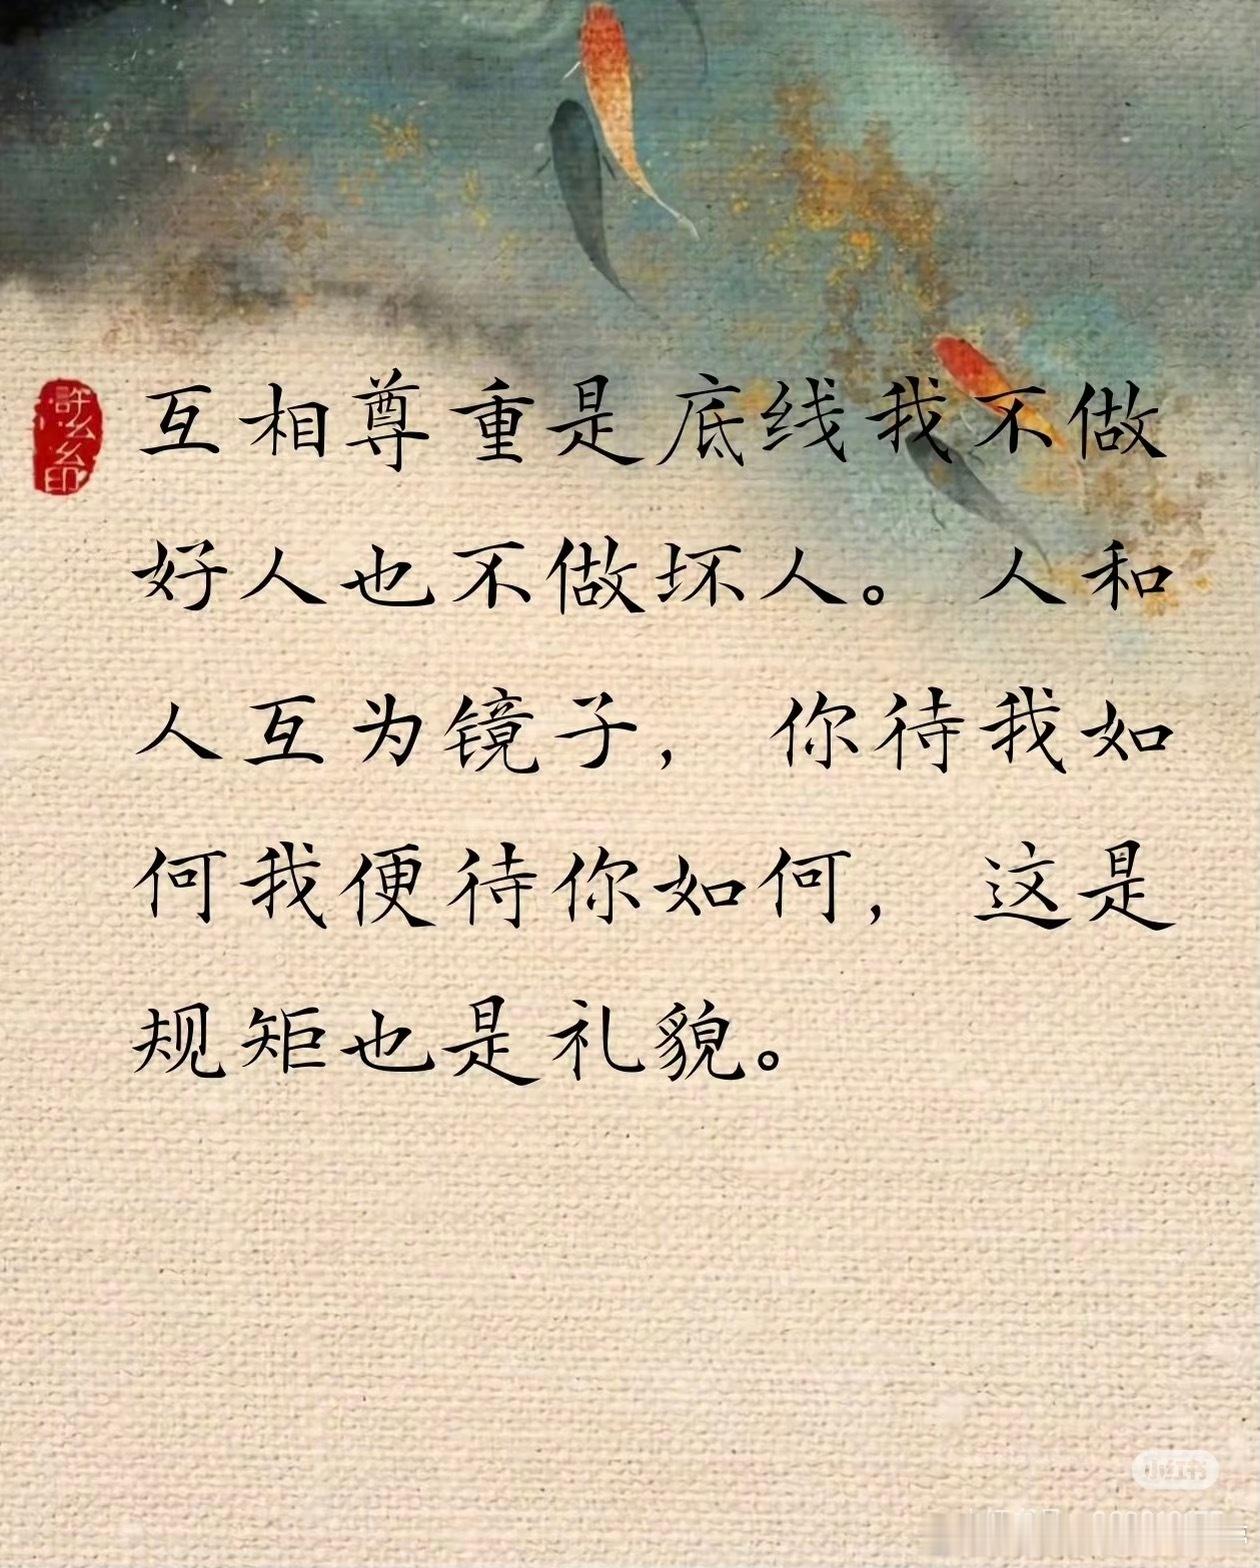 互相尊重是底线我不做
好人也不做坏人。人和
人互为镜子，你待我如
何我便待你如何，这是
规矩也是礼貌。
小红书